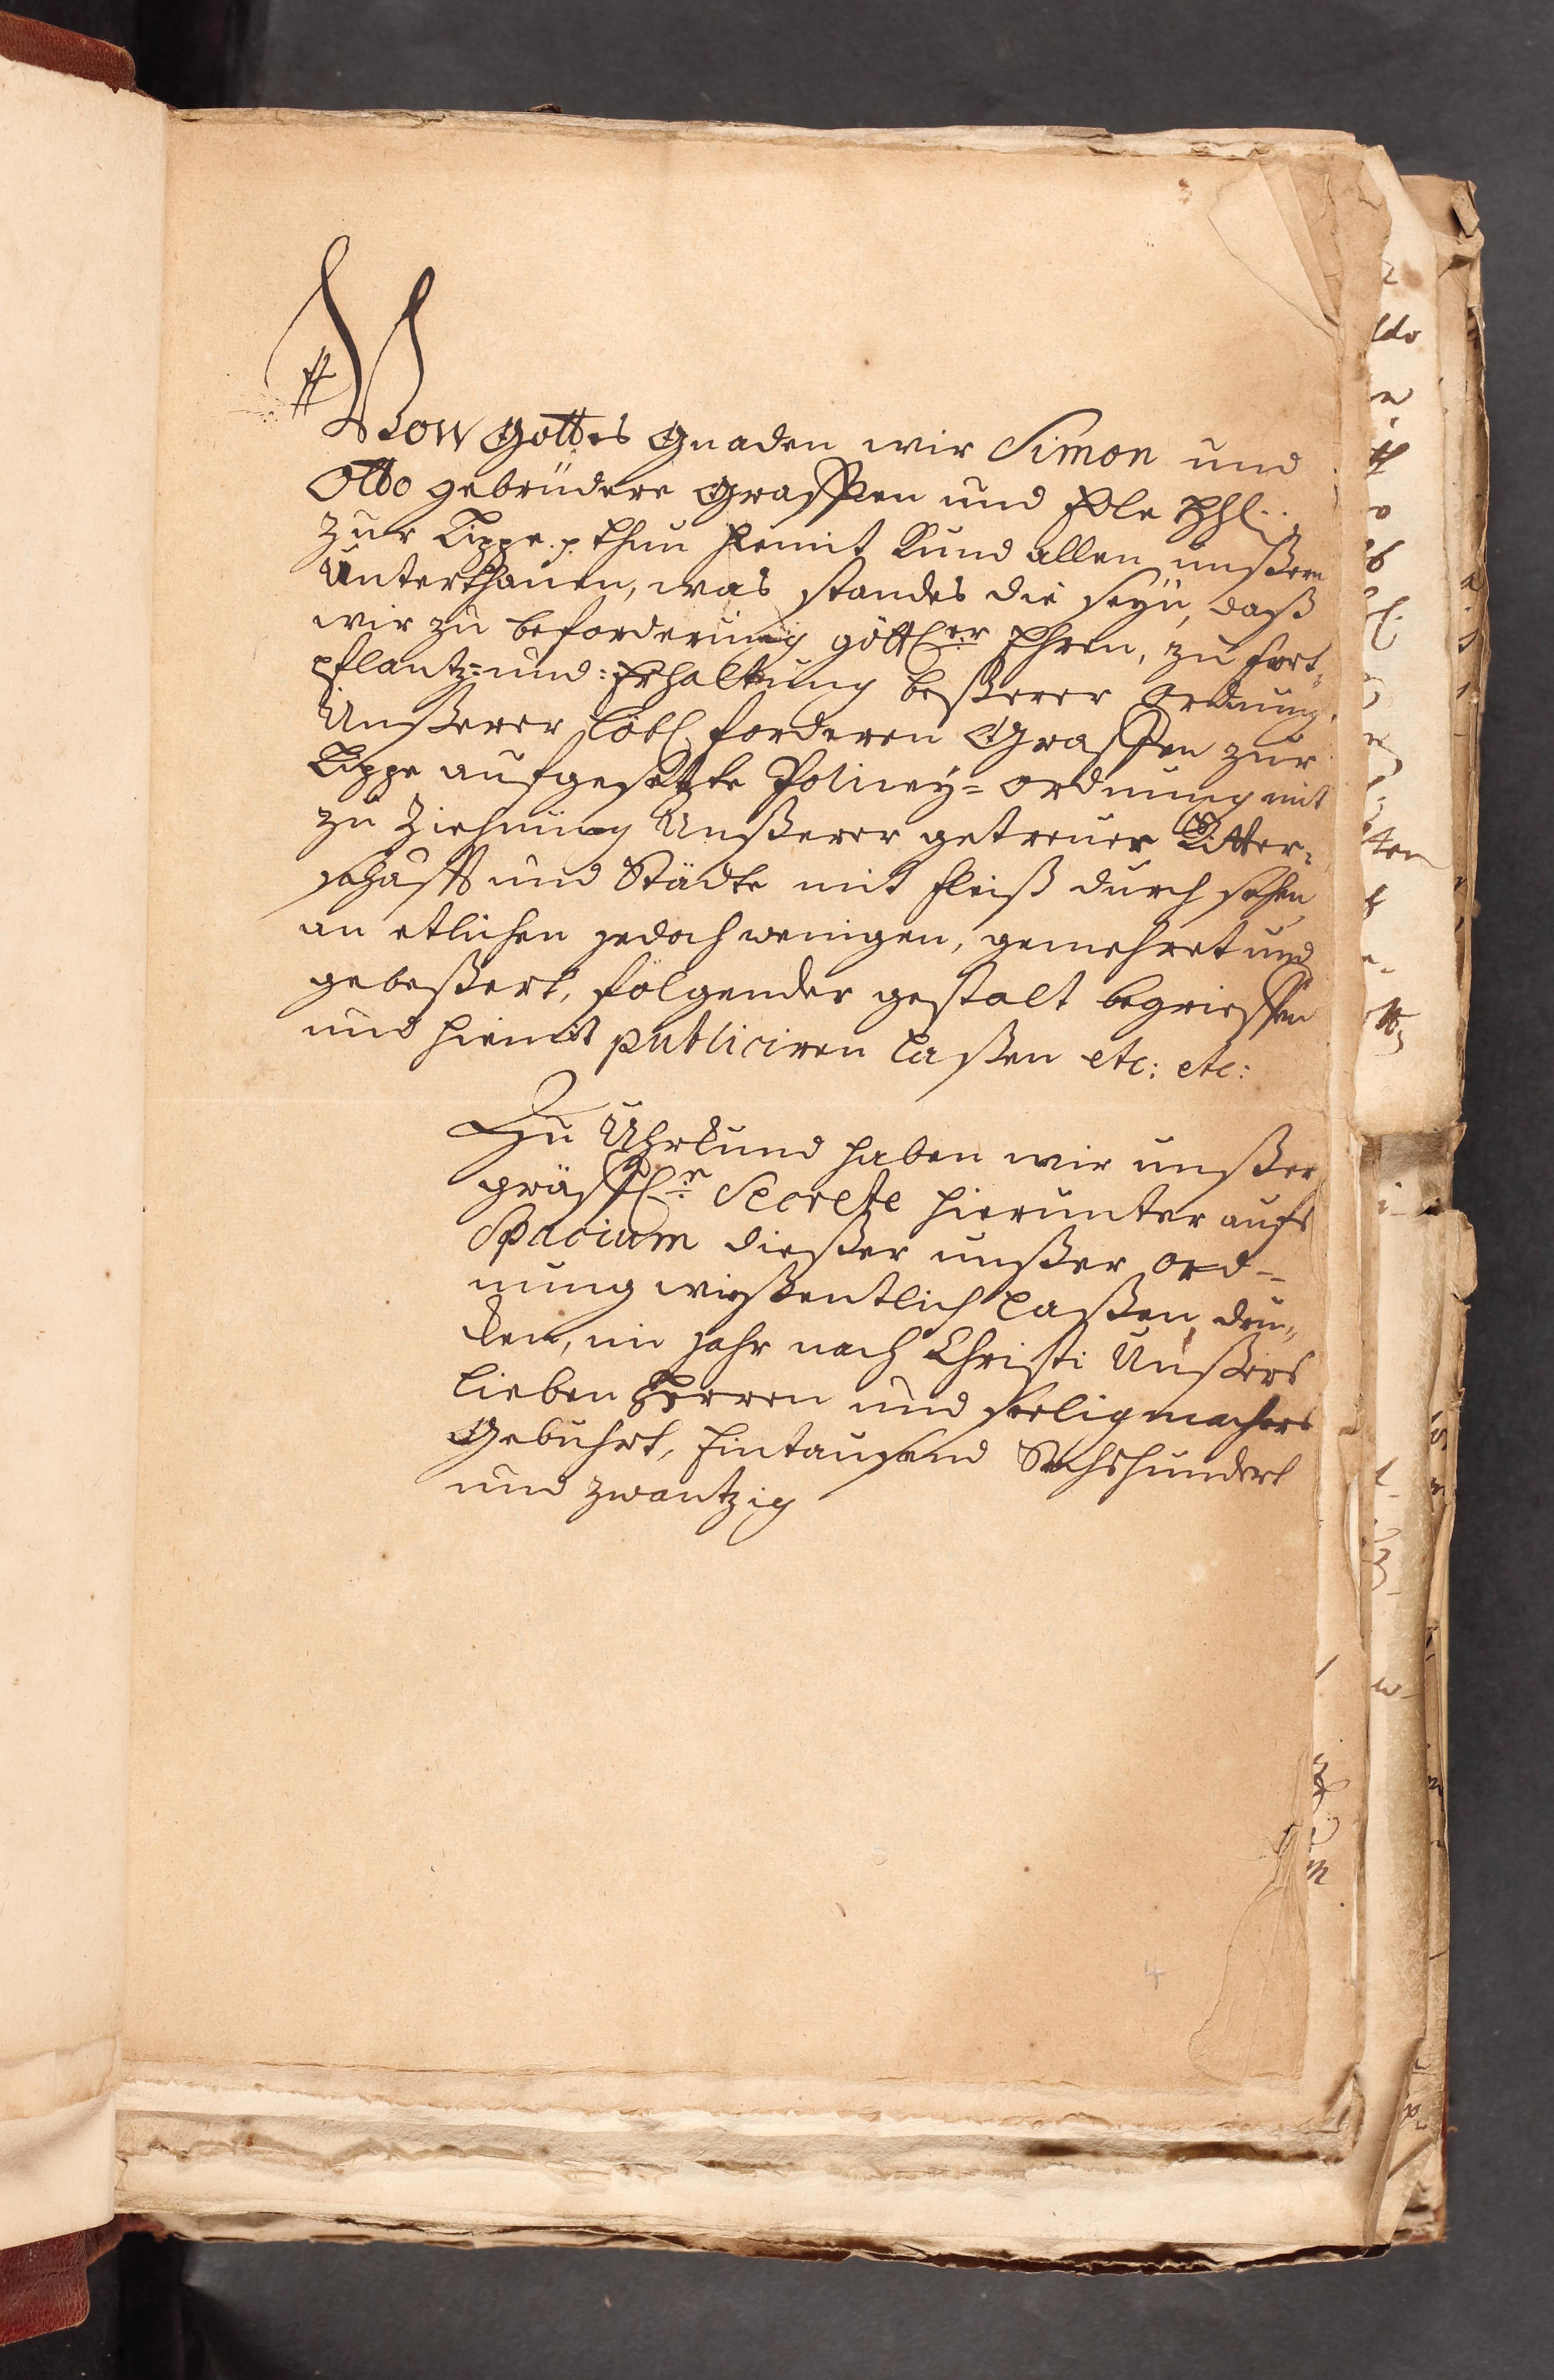 Von Gottes Gnaden wir Simon und
Otto gebrüdere Graffen und Edle HHl.
Zur Lippe p. thun hemit Kund allen unßern
Unterthanen, was standes die seyn, daß
wir zu beforderung göttler Ehren, zu fort-
pflantz- und Erhaltung beßerer Ordnung
Unßerer löbl. forderen Graffen zur
Lippe aufgesetzte Policey-Ordnung mit
zu Ziehung Unßerer getreuer Ritter-
schafft und Städte mit fleiß durch sehen
an etlichen jedoch wenigen, gemehret und
gebeßert, folgender gestalt begrieffen
und hiemit publiciren laßen etc: etc:
Zu Uhrkund haben wir unßer
gräffl.r Secrete hierunter aufs
Spacium dießer unßer Ord-
nung wißentlich laßen dru-
cken, im jahr nach Christi Unßers
lieben Herren und Seeligmachers
Gebuhrt, Eintausend Sechshundert
und zwantzig
4